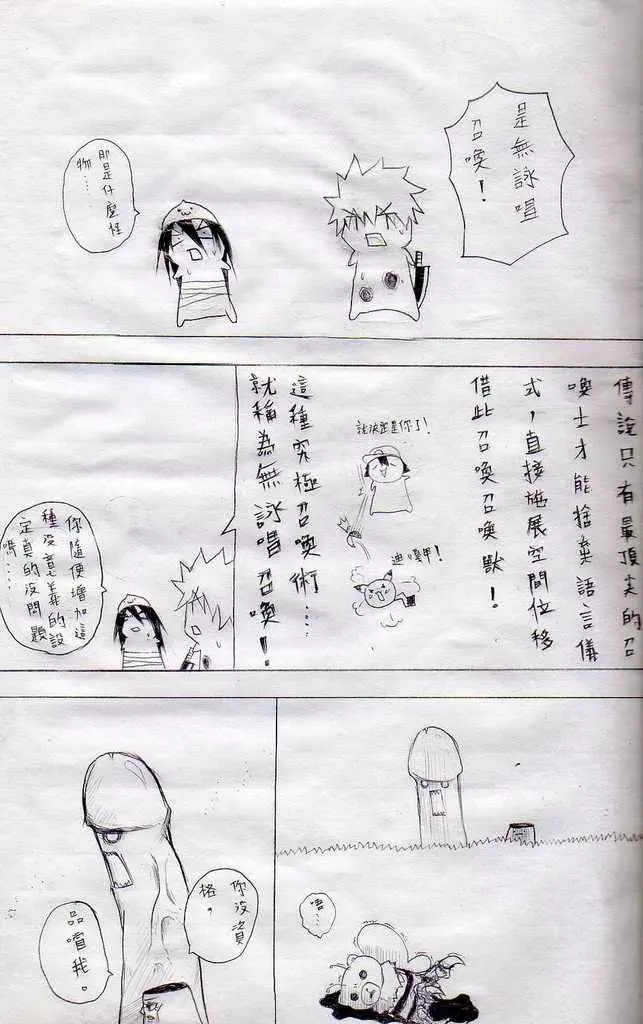 是無詠唱
召喚！
那是什麼怪
物……
傳說只有最頂尖的召
喚士才能捨棄語言儀
式，直接施展空間位移
借此召喚召喚獸！
就決定是你了！
迪嘎甲！
這種究極召喚術……
就稱為無詠唱召喚！
你隨便增加這
種沒意義的設
定真的沒問題
嗎……
唔…
你沒資
格。
品嚐我。